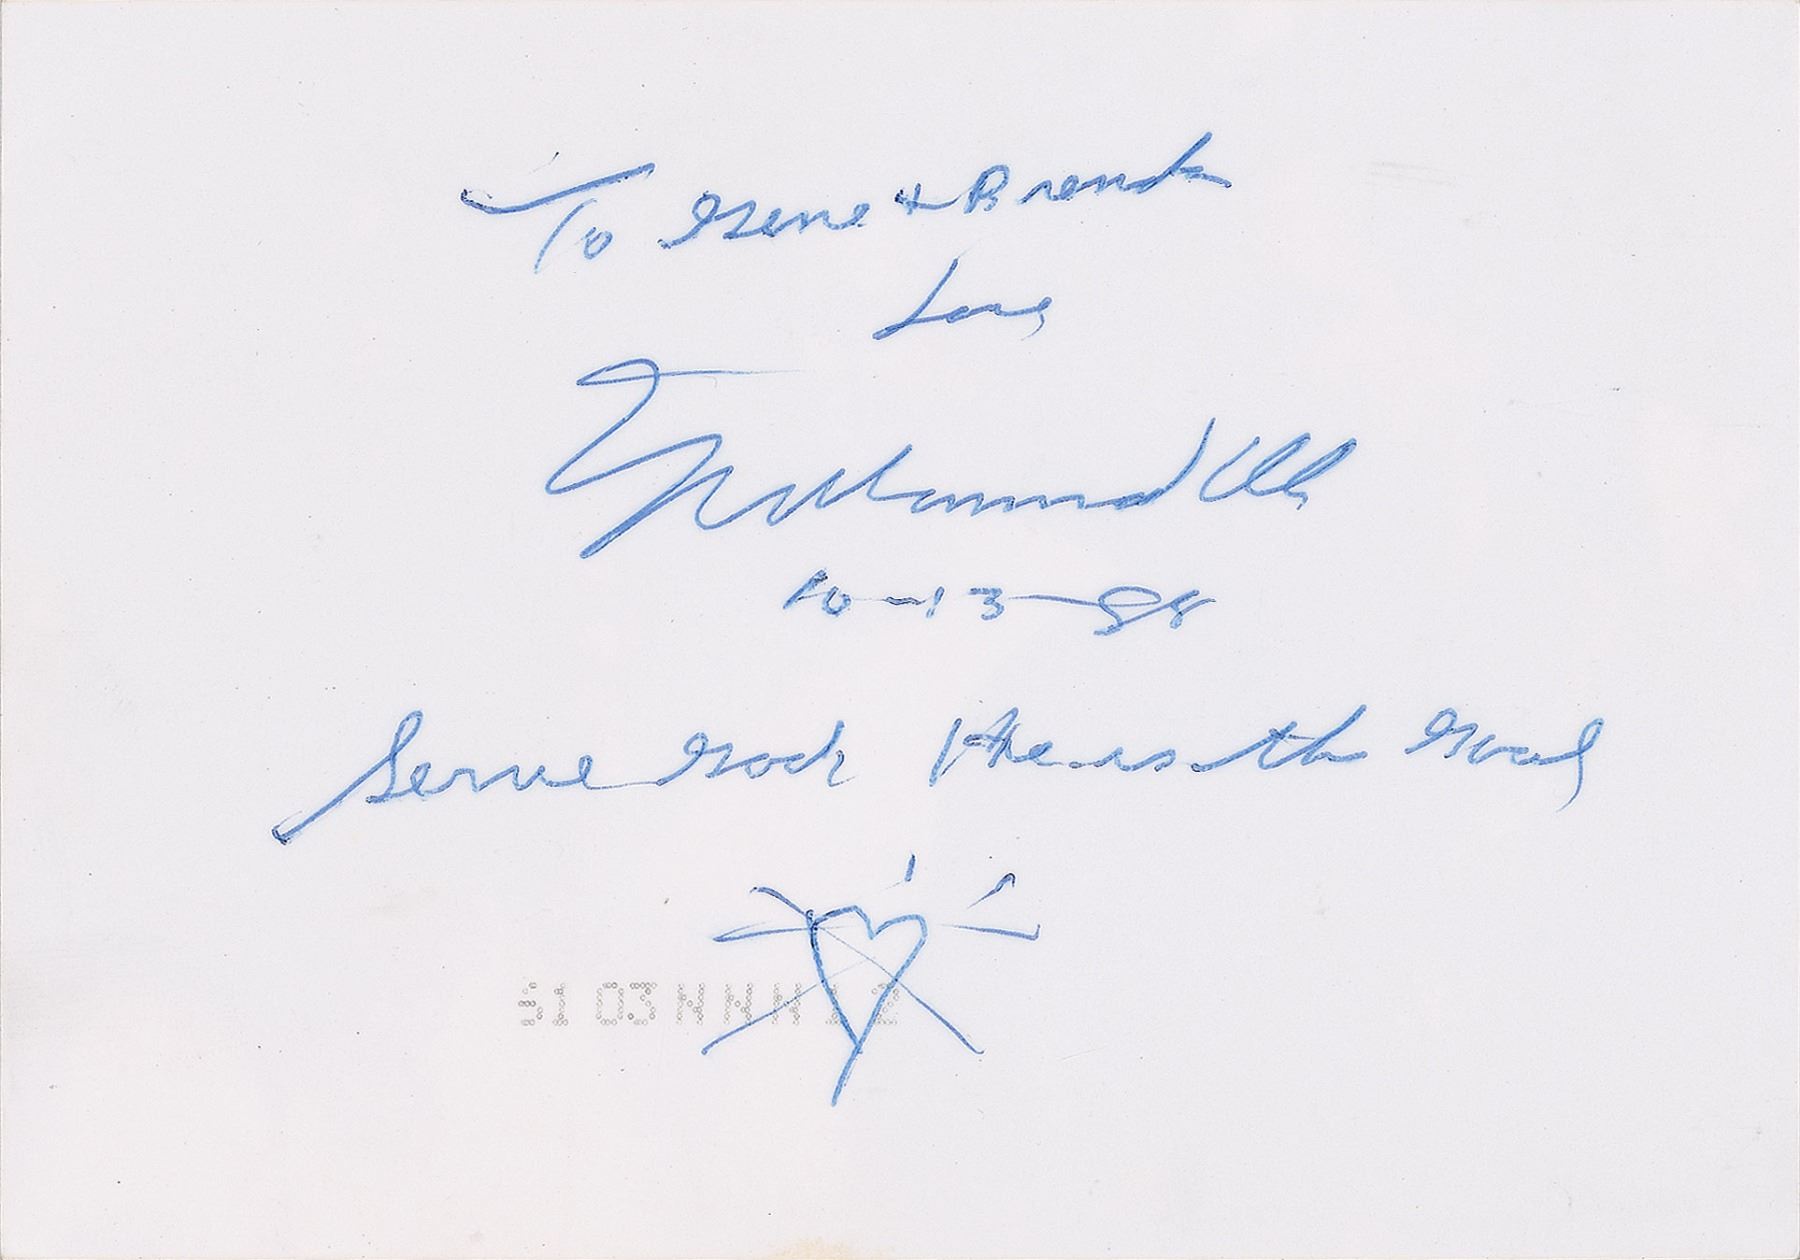 To Gene + Brenda
Love
Muhammad Ali
10-13-88
Serve God He is the Goal